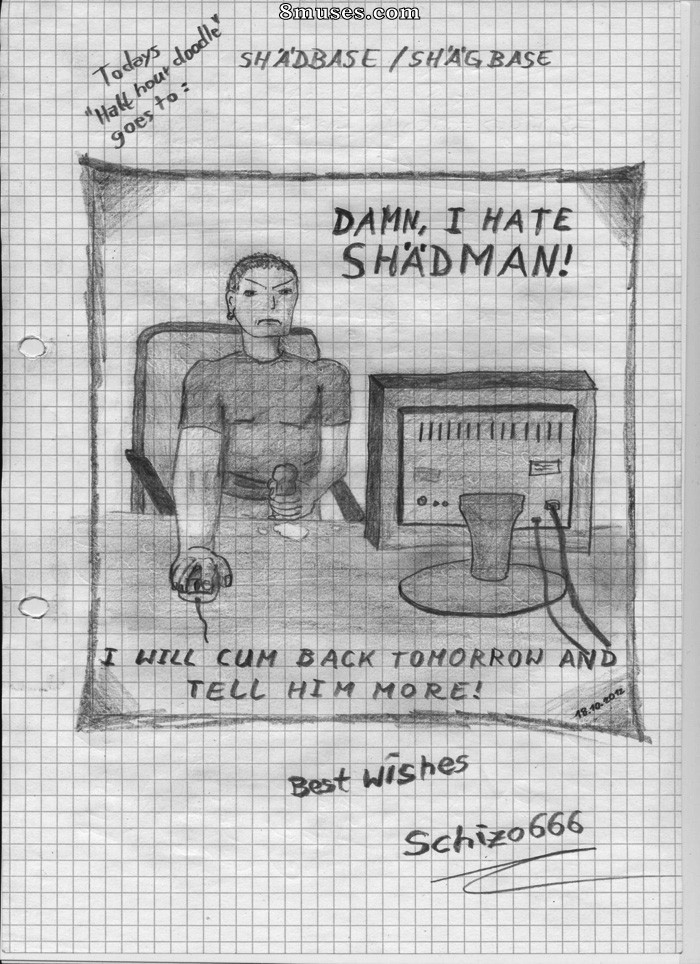 8muses.com
Todays
"Half hour doodle"
goes to:
SHÄDBASE / SHÄGBASE
DAMN, I HATE
SHÄDMAN!
I WILL CUM BACK TOMORROW AND
TELL HIM MORE!
18.10.2012
Best wishes
Schizo666